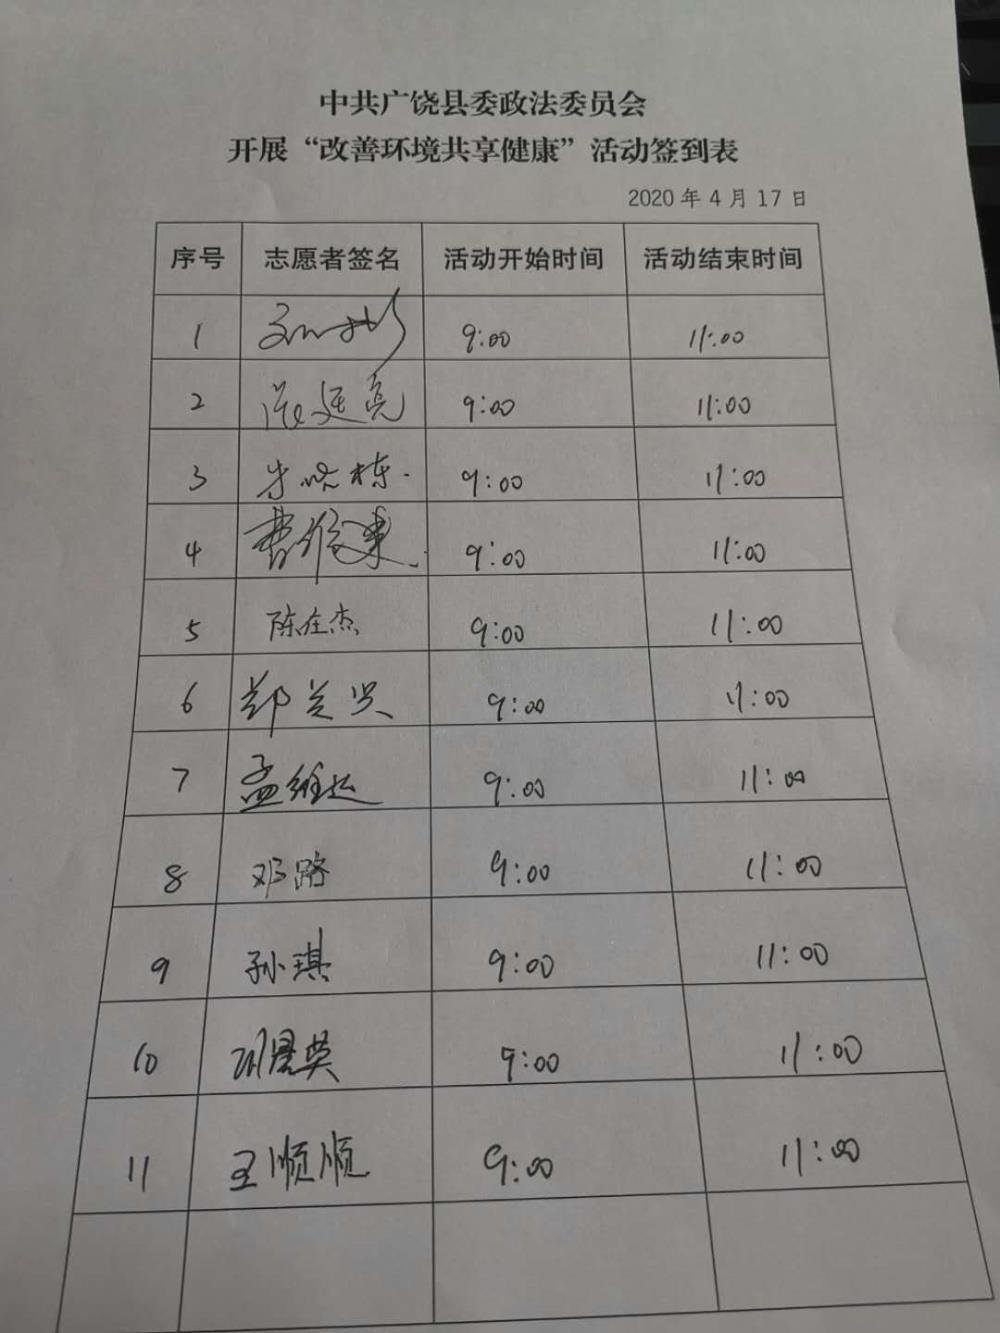 中共广饶县委政法委员会
开展“改善环境共享健康”活动签到表
2020年4月17日
序号 志愿者签名 活动开始时间 活动结束时间
1 9:00 11:00
2 廷亮 9:00 11:00
3 晓栋 9:00 11:00
4 曹俊东 9:00 11:00
5 陈在杰 9:00 11:00
6 郑兰兴 9:00 11:00
7 孟维达 9:00 11:00
8 邓路 9:00 11:00
9 孙琪 9:00 11:00
10 9:00 11:00
11 王顺顺 9:00 11:00